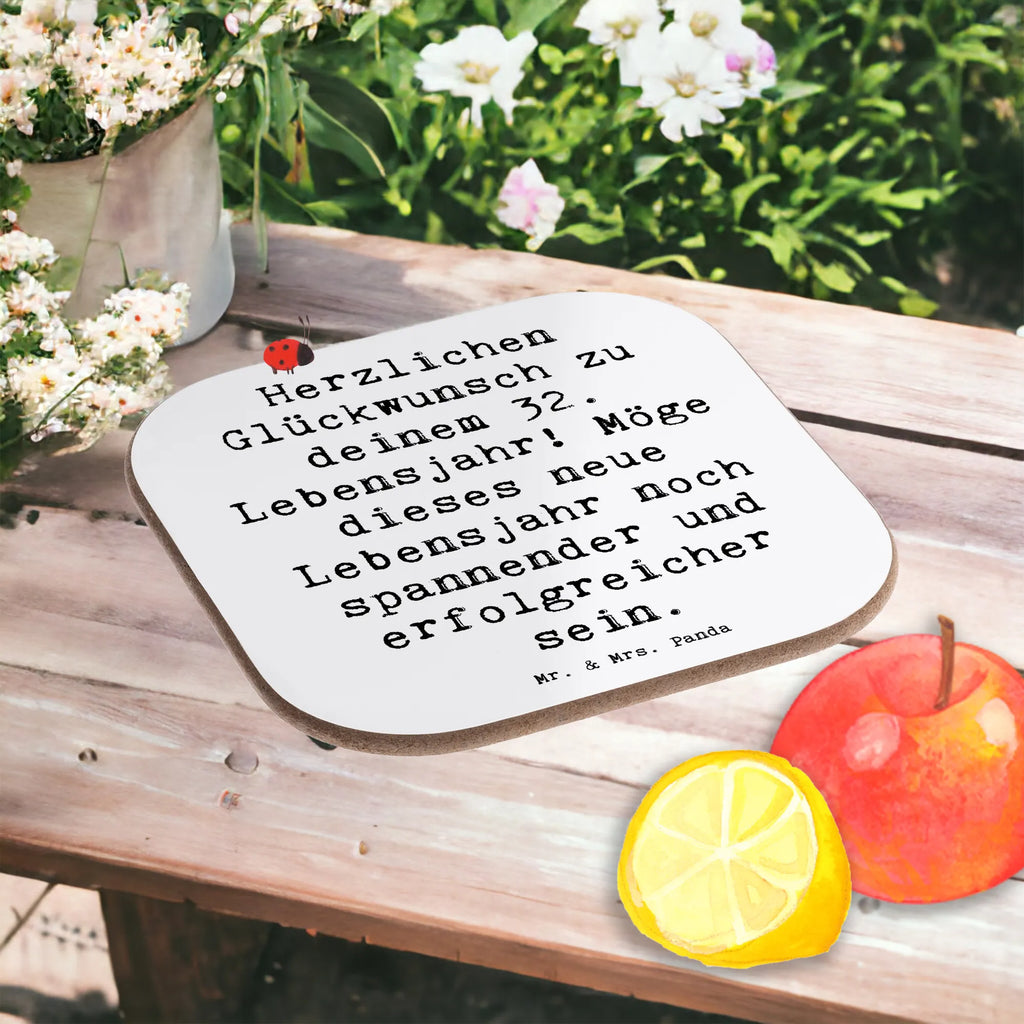 Herzlichen
Glückwunsch zu
deinem 32.
Lebensjahr! Möge
dieses neue
Lebensjahr noch
spannender und
erfolgreicher
sein.
Mr. & Mrs. Panda